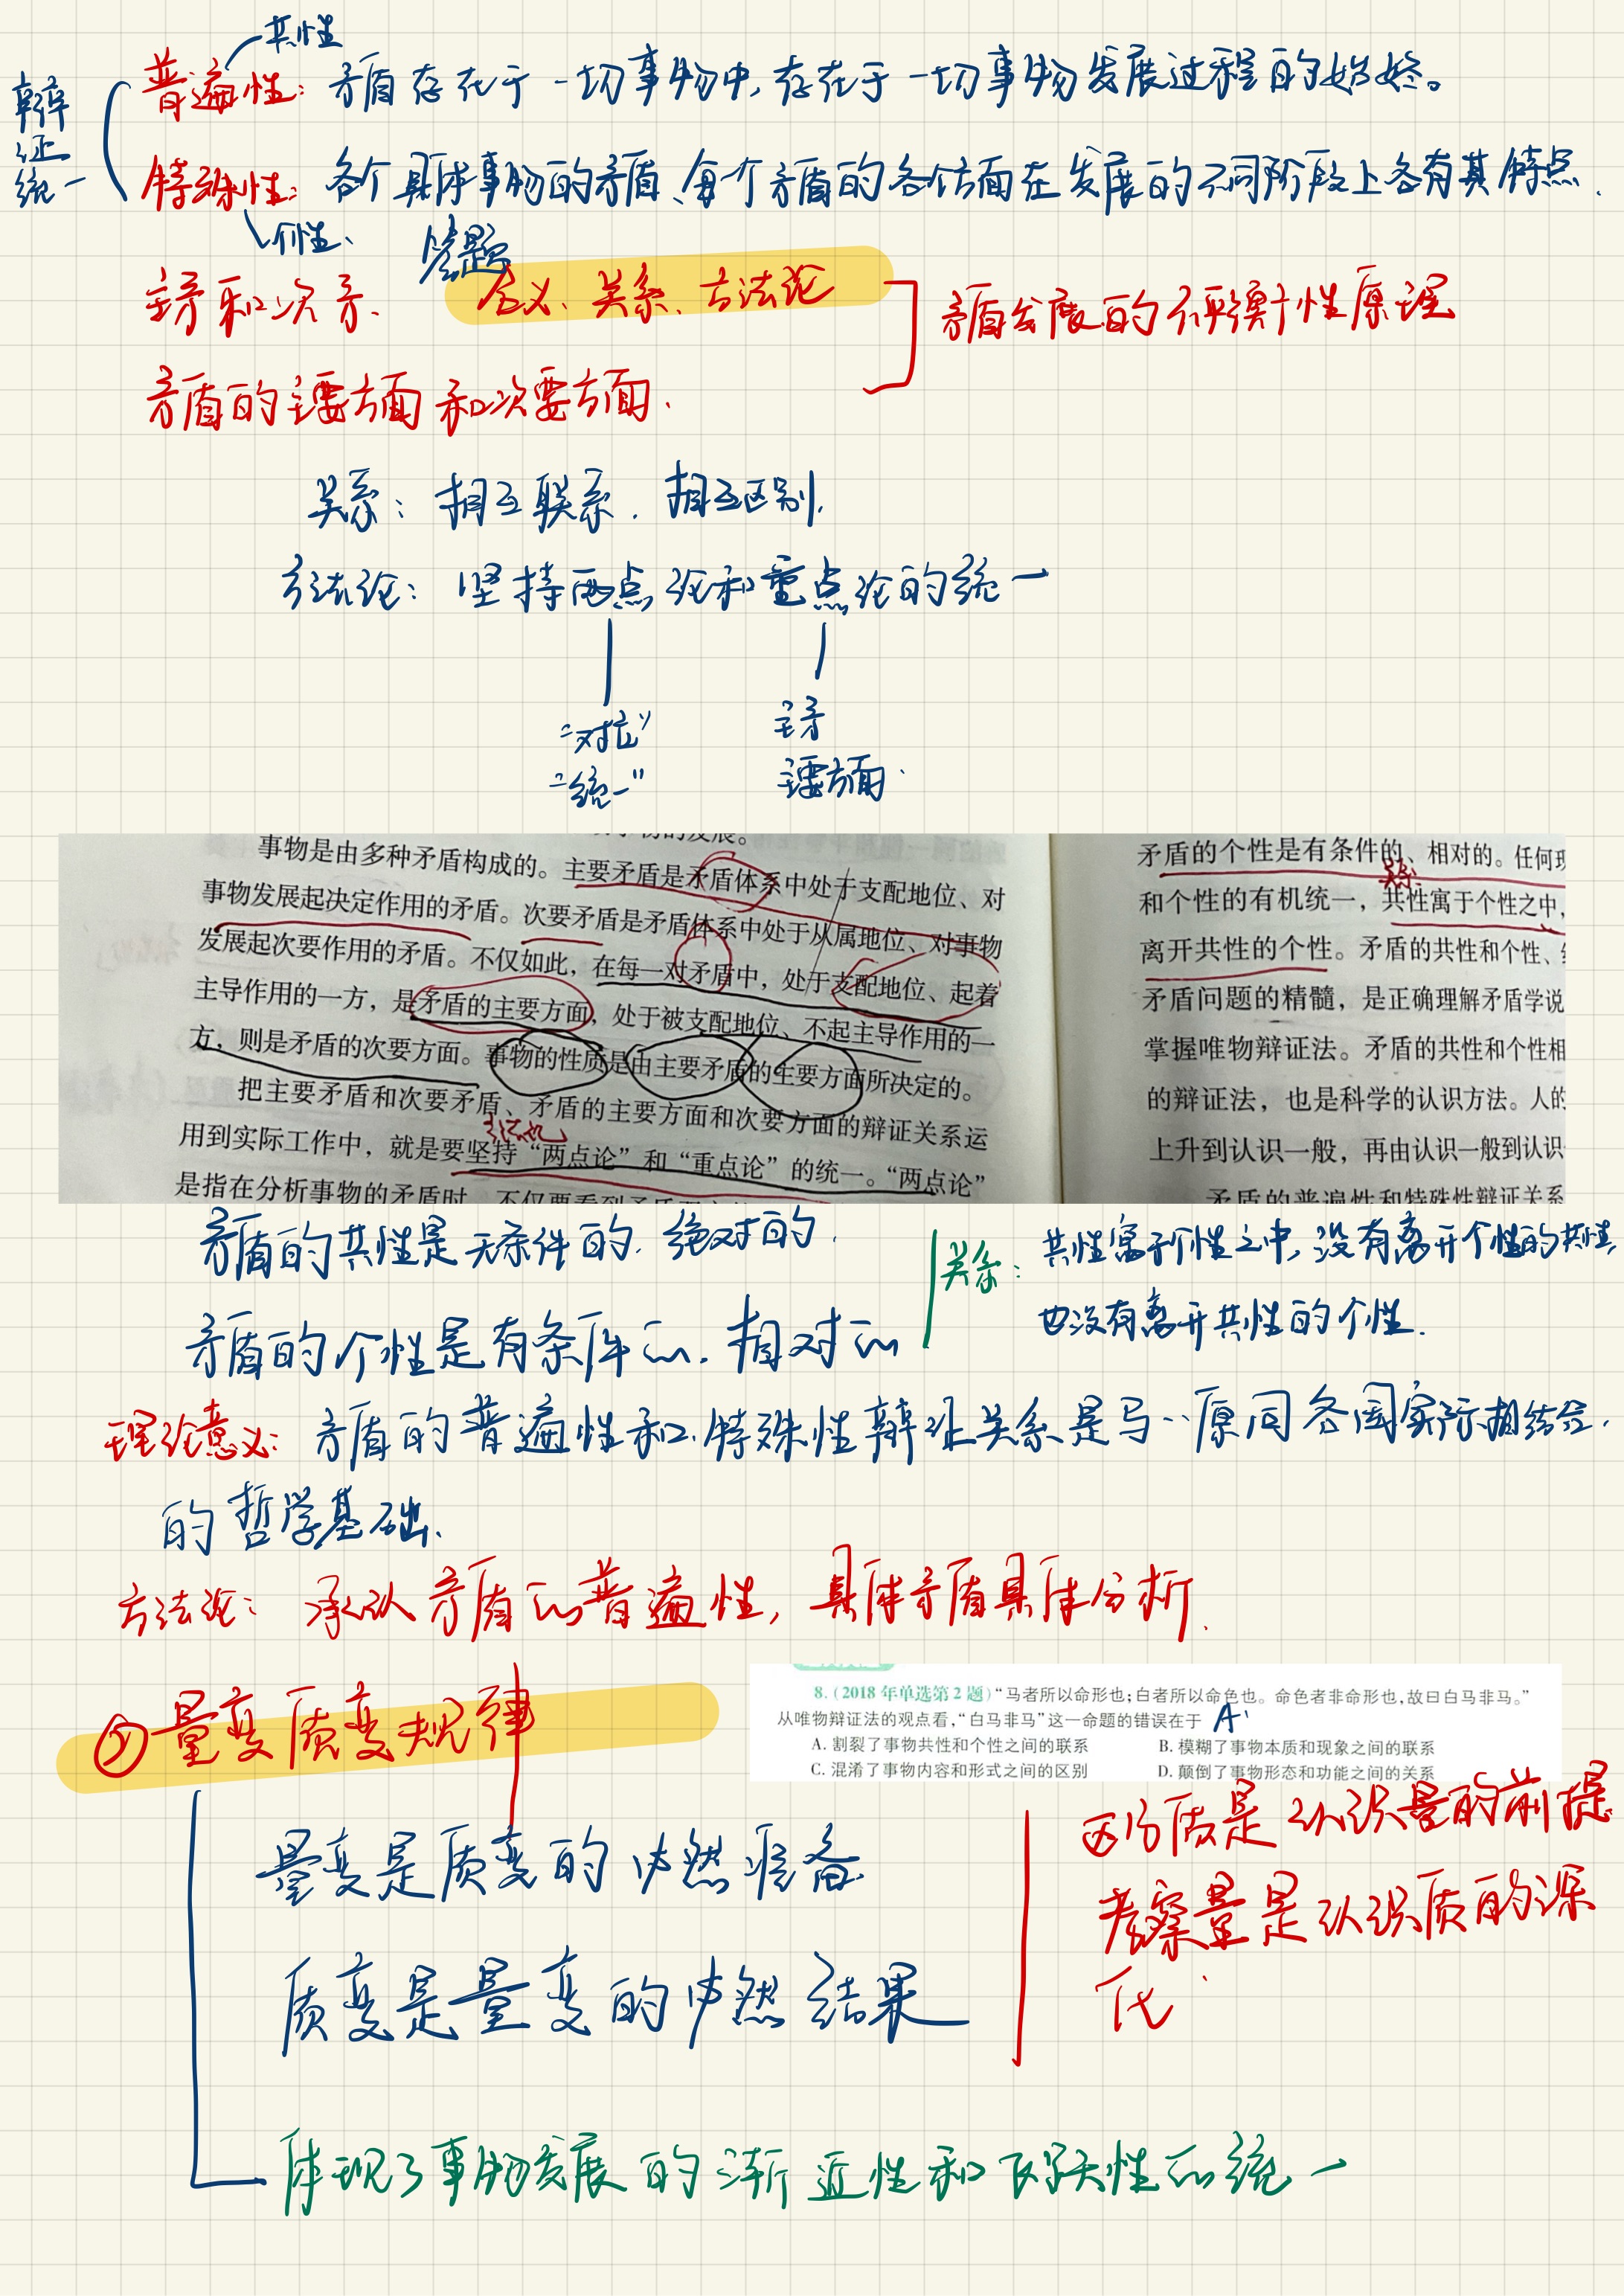 共性
普遍性：矛盾存在于一切事物中，存在于一切事物发展过程的始终。
辩证统一
特殊性：各个具体事物的矛盾、每个矛盾的各个方面在发展的不同阶段上各有其特点.
个性、
答题
主矛和次矛、 含义、关系、方法论
矛盾发展的不平衡性原理
矛盾的主要方面和次要方面.
关系：相互联系. 相互区别.
方法论：坚持两点论和重点论的统一
“对立” 主矛
“统一” 主要方面.
事物是由多种矛盾构成的。主要矛盾是矛盾体系中处于支配地位、对
事物发展起决定作用的矛盾。次要矛盾是矛盾体系中处于从属地位、对事物
发展起次要作用的矛盾。不仅如此，在每一对矛盾中，处于支配地位、起着
主导作用的一方，是矛盾的主要方面，处于被支配地位、不起主导作用的一
方，则是矛盾的次要方面。事物的性质是由主要矛盾的主要方面所决定的。
把主要矛盾和次要矛盾、矛盾的主要方面和次要方面的辩证关系运
方法论
用到实际工作中，就是要坚持“两点论”和“重点论”的统一。“两点论”
是指在分析事物的矛盾时，不仅要看到矛盾
矛盾的个性是有条件的、相对的。任何现
关系
和个性的有机统一，共性寓于个性之中，
离开共性的个性。矛盾的共性和个性、
矛盾问题的精髓，是正确理解矛盾学说
掌握唯物辩证法。矛盾的共性和个性相
的辩证法，也是科学的认识方法。人的
上升到认识一般，再由认识一般到认识
矛盾的普遍性和特殊性辩证关系
矛盾的共性是无条件的. 绝对的.
矛盾的个性是有条件的. 相对的
关系：共性寓于个性之中，没有离开个性的共性，
也没有离开共性的个性.
理论意义：矛盾的普遍性和特殊性辩证关系是马··原同各国实际相结合.
的哲学基础.
方法论：承认矛盾的普遍性，具体矛盾具体分析.
② 量变质变规律
8.(2018 年单选第 2 题)“马者所以命形也；白者所以命色也。命色者非命形也，故曰白马非马。”
从唯物辩证法的观点看，“白马非马”这一命题的错误在于 A
A. 割裂了事物共性和个性之间的联系 B. 模糊了事物本质和现象之间的联系
C. 混淆了事物内容和形式之间的区别 D. 颠倒了事物形态和功能之间的关系
量变是质变的必然准备
质变是量变的必然结果
区分质是认识量的前提
考察量是认识质的深
化.
体现了事物发展的渐近性和飞跃性的统一